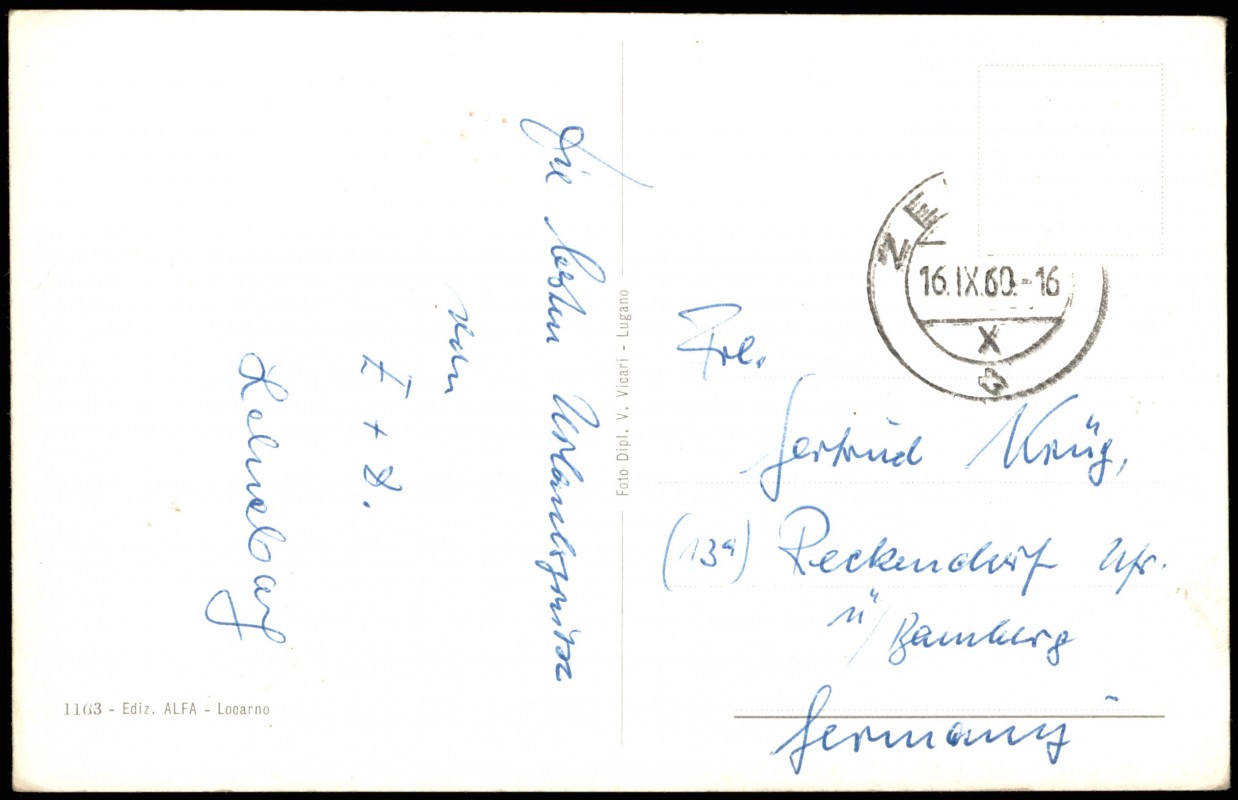 Die besten Urlaubsgrüsse
von
F + D.
Foto Dipl. V. Vicari - Lugano
1163 - Ediz. ALFA - Locarno
ZE
16.IX.60.-16
X
Frl.
Gertrud Krüg,
(13a) Reckendorf Ufr.
ü/Bamberg
Germany